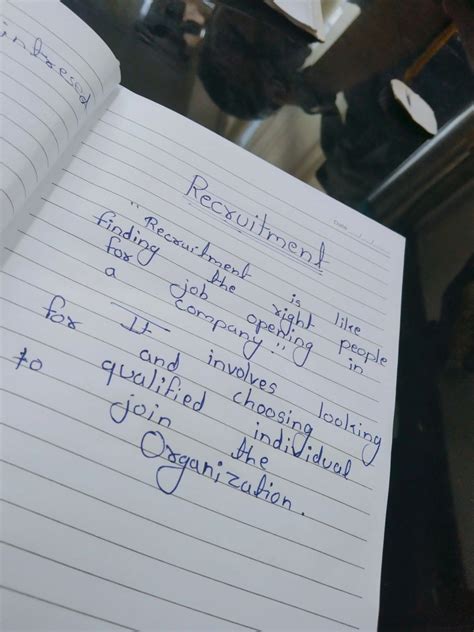 intresed
Date
Recruitment
"Recruitment is like
finding the right people
for job opening in
a company!!
It involves looking
for and choosing
qualified individual
to join the
Organization.